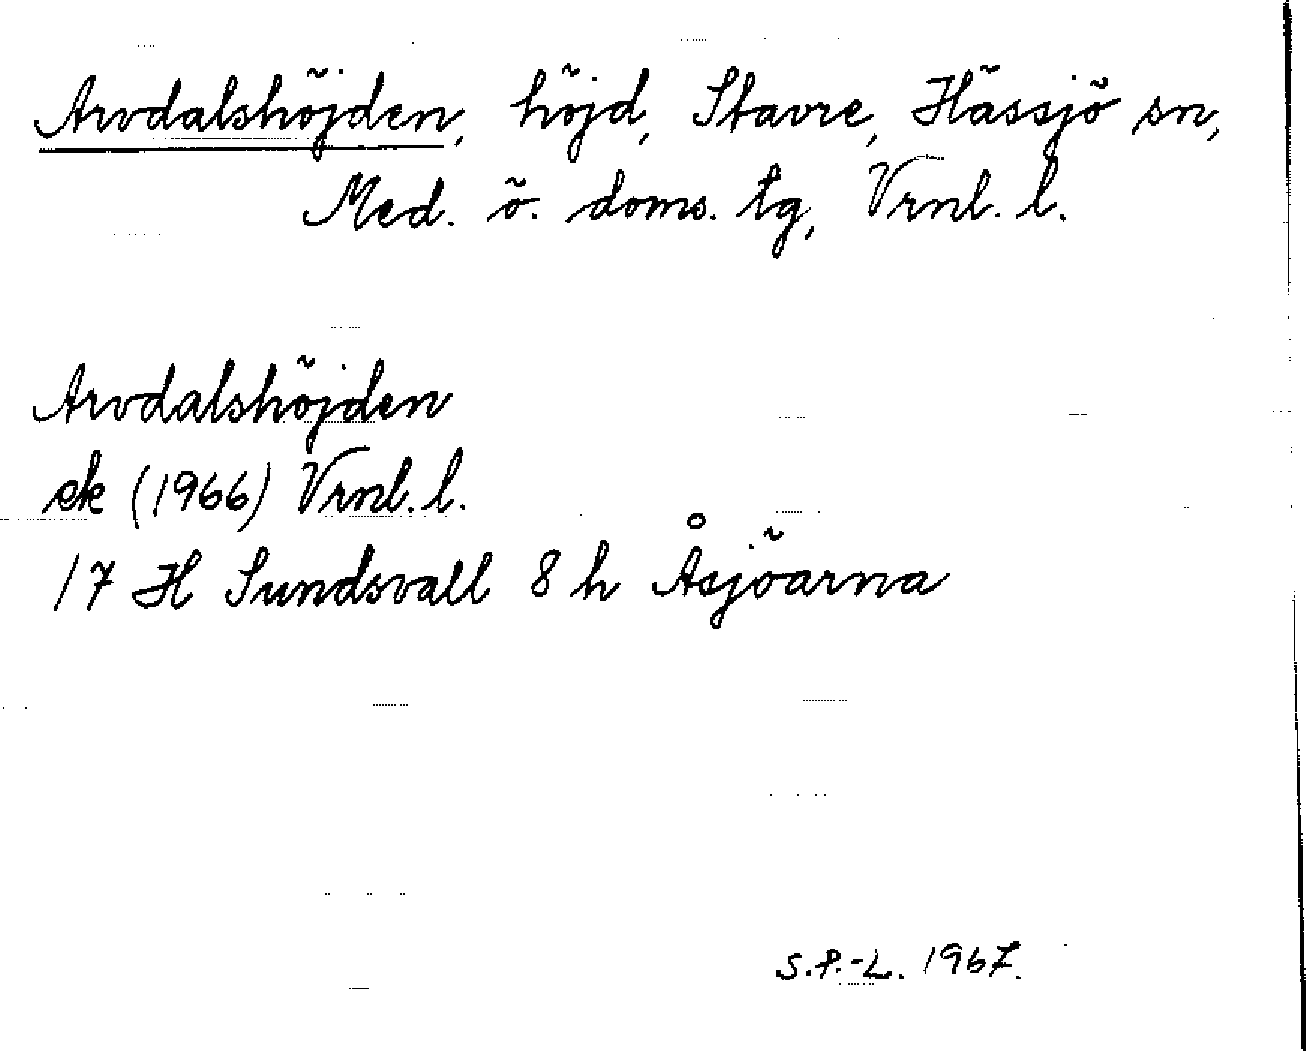 Arvdalshöjden, höjd, Stavre, Hässjö sn,
Med. ö. doms. tg, Vrnl. l.
Arvdalshöjden
ek (1966) Vrnl. l.
17 H Sundsvall 8 h Åsjöarna
S.P.-L. 1967.